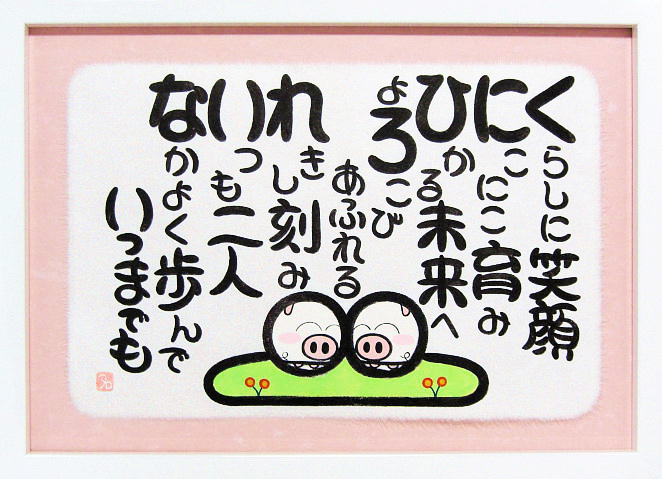 くらしに笑顔
にこにこ育み
ひかる未来へ
よろこび
あふれる
れきし刻み
いつも二人
なかよく歩んで
いつまでも